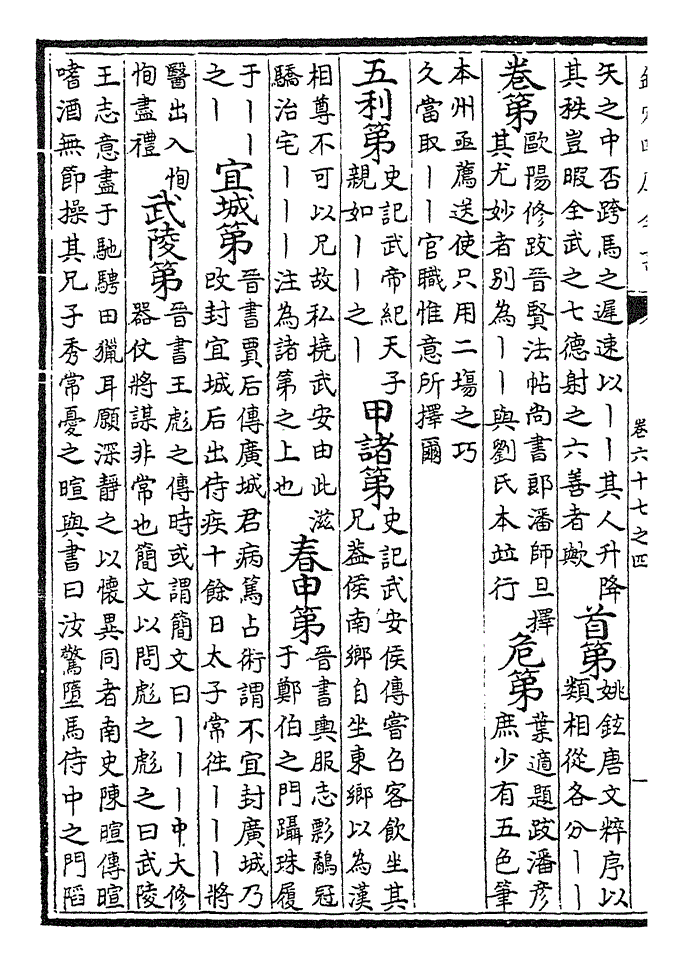 卷六十七之四
一
矢之中否跨馬之遲速以丨丨其人升降
其秩豈暇全武之七德射之六善者歟
首第
姚鉉唐文粹序以
類相從各分丨丨
卷第
歐陽修跋晉賢法帖尚書郎潘師旦擇
其尤妙者別為丨丨與劉氏本竝行
危第
葉適題跋潘彥
庶少有五色筆
本州亟薦送使只用二塲之巧
久當取丨丨官職惟意所擇爾
五利第
史記武帝紀天子
親如丨丨之丨
甲諸第
史記武安侯傳嘗召客飲坐其
兄葢侯南鄉自坐東鄉以為漢
相尊不可以兄故私橈武安由此滋
驕治宅丨丨丨注為諸第之上也
春申第
晉書輿服志彯鶡冠
于鄭伯之門躡珠履
于丨丨
之丨
宜城第
晉書賈后傳廣城君病篤占術謂不宜封廣城乃
改封宜城后出侍疾十餘日太子常徃丨丨丨將
醫出入恂
恂盡禮
武陵第
晉書王彪之傳時或謂簡文曰丨丨丨中大修
器仗將謀非常也簡文以問彪之彪之曰武陵
王志意盡于馳騁田獵耳願深靜之以懷異同者南史陳暄傳暄
嗜酒無節操其兄子秀常憂之暄與書曰汝驚墮馬侍中之門䧟